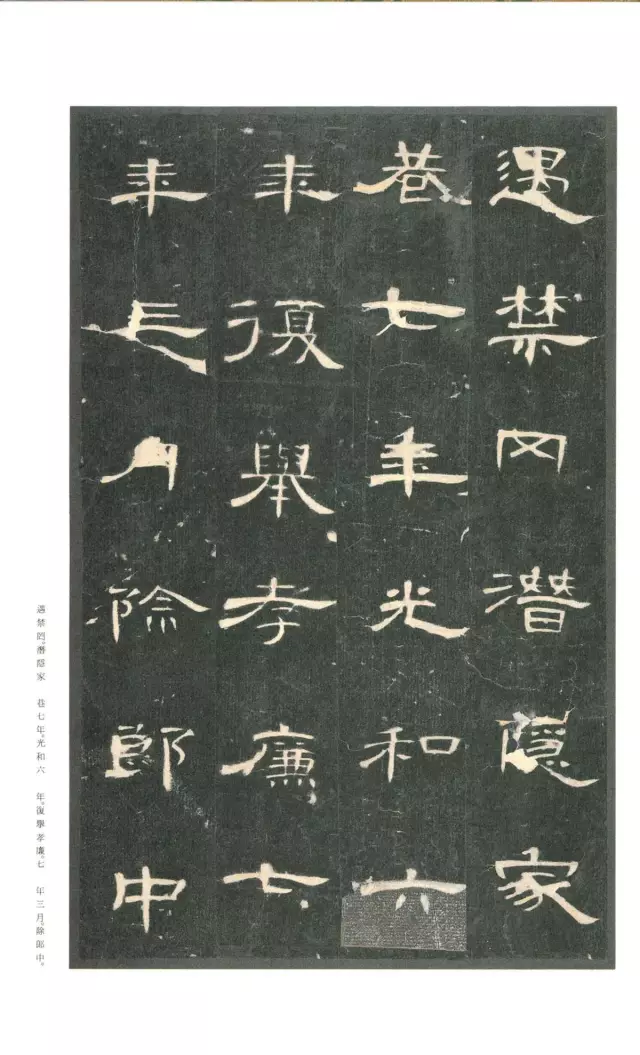 遇禁罔潛隱家
巷七年光和六
年復舉孝廉七
年三月除郎中
遇禁罔。潛隱家 巷七年。光和六 年。復舉孝廉。七 年三月。除郎中。